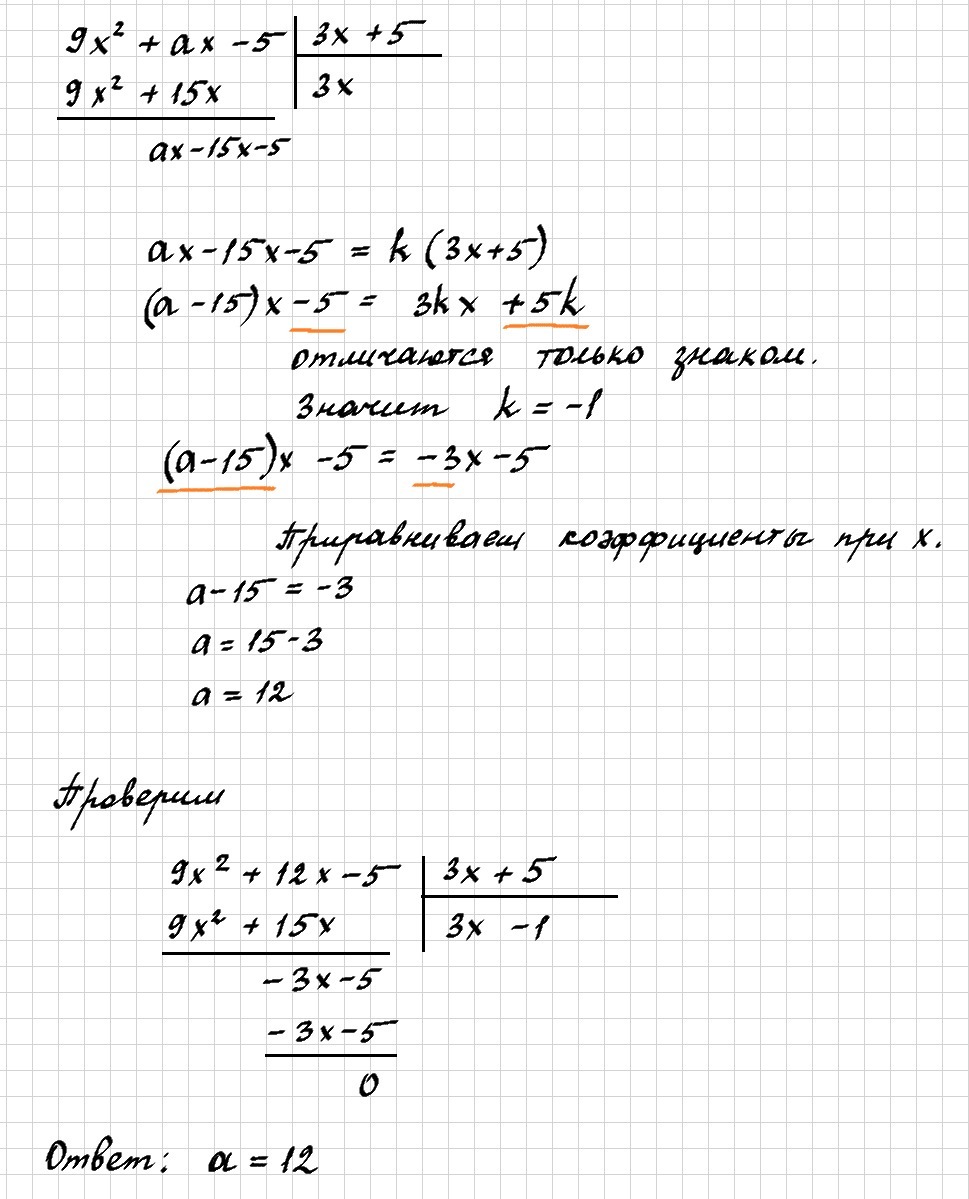 9x² + ax - 5 | 3x + 5
9x² + 15x | 3x
ax - 15x - 5
ax - 15x - 5 = k (3x + 5)
(a - 15)x - 5 = 3kx + 5k
отличаются только знаком.
Значит k = -1
(a - 15)x - 5 = -3x - 5
Приравниваем коэффициенты при x.
a - 15 = -3
a = 15 - 3
a = 12
Проверим
9x² + 12x - 5 | 3x + 5
9x² + 15x | 3x - 1
- 3x - 5
- 3x - 5
0
Ответ: a = 12